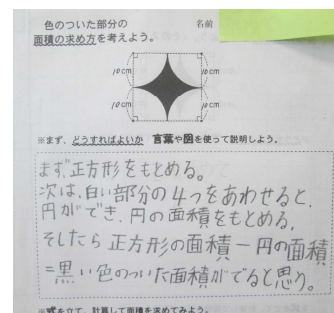 色のついた部分の 名前
面積の求め方を考えよう。
10cm 10cm
10cm 10cm
※まず、どうすればよいか 言葉や図を使って説明しよう。
まず、正方形をもとめる。
次は、白い部分の4つをあわせると、
円ができ、円の面積をもとめる。
そしたら 正方形の面積-円の面積
=黒い色のついた面積がでると思う。
※式を立て、計算して面積を求めてみよう。